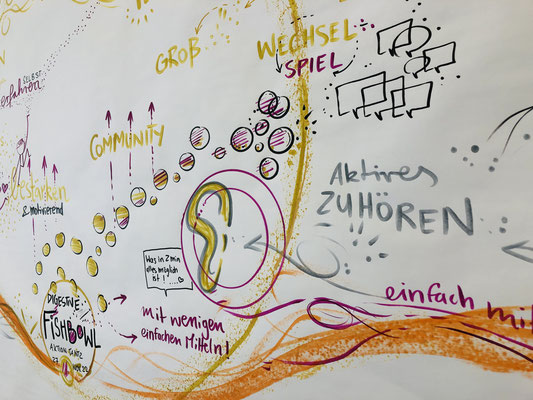 GROß
WECHSEL
SPIEL
SELBST
erfahren
COMMUNITY
bestärken
& motivierend
Aktives
ZUHÖREN
Was in 2 min
alles möglich
ist ! .....
DIGESTIVE
FISHBOWL
AKTION TANZ
mit wenigen
einfachen Mitteln!
einfach mit